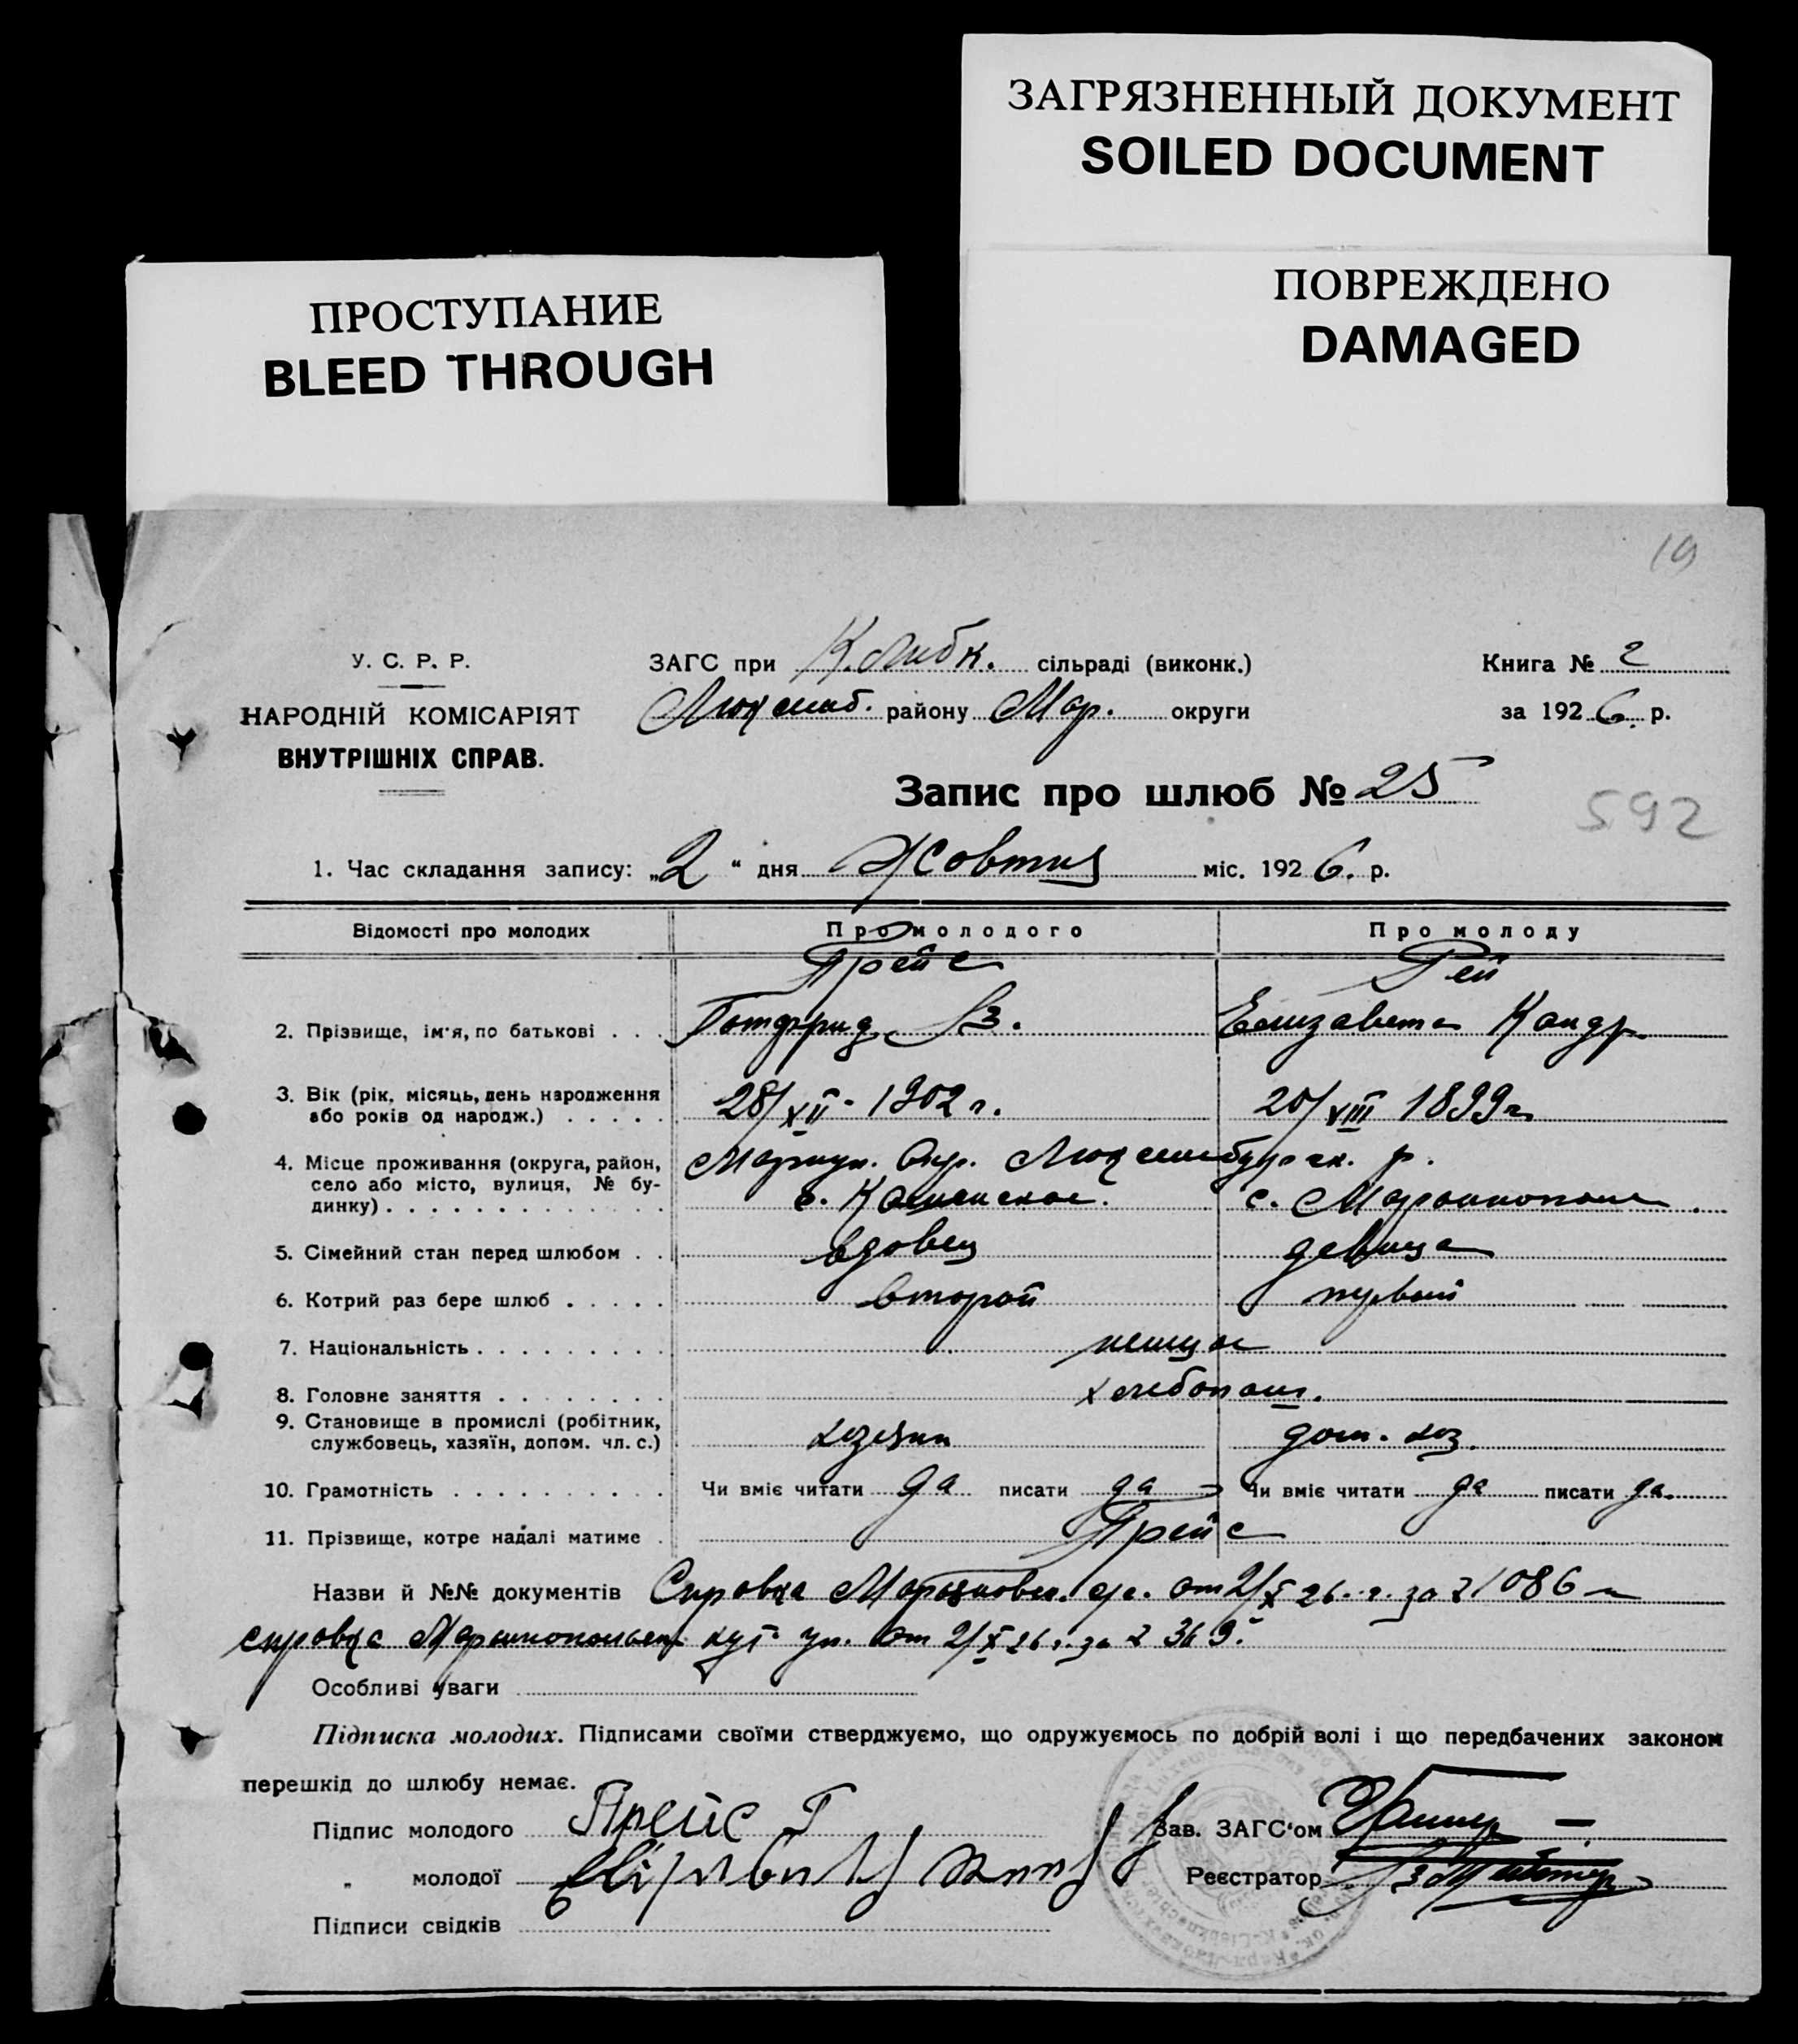 ЗАГРЯЗНЕННЫЙ ДОКУМЕНТ
SOILED DOCUMENT
ПРОСТУПАНИЕ
BLEED THROUGH
ПОВРЕЖДЕНО
DAMAGED
19
У. С. Р. Р.
НАРОДНІЙ КОМІСАРІЯТ
ВНУТРІШНІХ СПРАВ.
ЗАГС при К. Либк. сільраді (виконк.)
Люксемб. району Мар. округи
Книга № 2
за 1926. р.
Запис про шлюб № 25
592
1. Час складання запису: „2“ дня Жовтня міс. 1926. р.
Відомості про молодих Про молодого Про молоду
Прейс Рейх
2. Прізвище, ім'я, по батькові . . . Готфрид Елизавета Кондр
3. Вік (рік, місяць, день народження 28/XII - 1902 г. 20/VIII 1899 г.
або років од народж.) . . . . .
4. Місце проживання (округа, район, Мариуп. Окр. Люксембургск. р.
село або місто, вулиця, № бу- с. Каменское. с.
динку) . . . . . . . . . . . . .
5. Сімейний стан перед шлюбом . . вдовец девица
6. Котрий раз бере шлюб . . . . . второй первый
7. Національність . . . . . . . . . немцы
8. Головне заняття . . . . . . . . хлебопаш.
9. Становище в промислі (робітник,
службовець, хазяїн, допом. чл. с.) хозяин дом. хоз.
10. Грамотність . . . . . . . . . . Чи вміє читати да писати да Чи вміє читати да писати да.
11. Прізвище, котре надалі матиме . Прейс
Назви й №№ документів Справка от 2/X 26. г. за № 1086 и
справка от 2/X 26 г. за № 369.
Особливі уваги
Підписка молодих. Підписами своїми стверджуємо, що одружуємось по добрій волі і що передбачених законом
перешкід до шлюбу немає.
Підпис молодого Прейс Г
Зав. ЗАГС'ом
„ молодої
Реєстратор
Підписи свідків